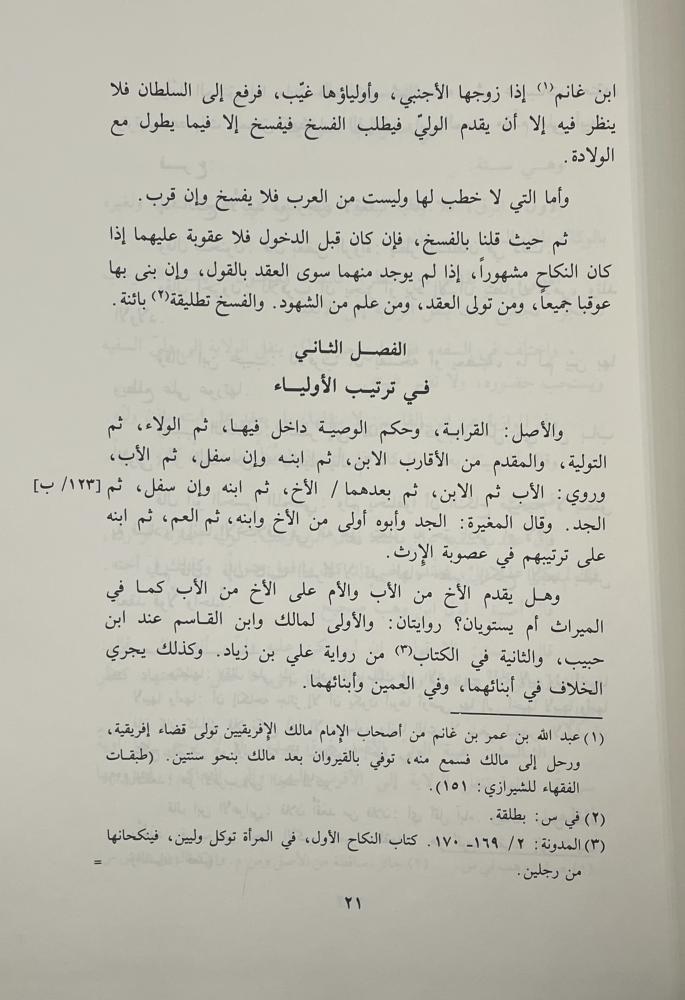 ابن غانم(١) إذا زوجها الأجنبي، وأولياؤها غيّب، فرفع إلى السلطان فلا
ينظر فيه إلا أن يقدم الوليّ فيطلب الفسخ فيفسخ إلا فيما يطول مع
الولادة.
وأما التي لا خطب لها وليست من العرب فلا يفسخ وإن قرب.
ثم حيث قلنا بالفسخ، فإن كان قبل الدخول فلا عقوبة عليهما إذا
كان النكاح مشهوراً، إذا لم يوجد منهما سوى العقد بالقول، وإن بنى بها
عوقبا جميعاً، ومن تولى العقد، ومن علم من الشهود. والفسخ تطليقة(٢) بائنة.
الفصل الثاني
في ترتيب الأولياء
والأصل: القرابة، وحكم الوصية داخل فيها، ثم الولاء، ثم
التولية، والمقدم من الأقارب الابن، ثم ابنه وإن سفل، ثم الأب،
وروي: الأب ثم الابن، ثم بعدهما / الأخ، ثم ابنه وإن سفل، ثم [١٢٣/ ب]
الجد. وقال المغيرة: الجد وأبوه أولى من الأخ وابنه، ثم العم، ثم ابنه
على ترتيبهم في عصوبة الإِرث.
وهل يقدم الأخ من الأب والأم على الأخ من الأب كما في
الميراث أم يستويان؟ روايتان: والأولى لمالك وابن القاسم عند ابن
حبيب، والثانية في الكتاب(٣) من رواية علي بن زياد. وكذلك يجري
الخلاف في أبنائهما، وفي العمين وأبنائهما.
(١) عبد الله بن عمر بن غانم من أصحاب الإمام مالك الإفريقيين تولى قضاء إفريقية،
ورحل إلى مالك فسمع منه، توفي بالقيروان بعد مالك بنحو سنتين. (طبقات
الفقهاء للشيرازي: ١٥١).
(٢) في س: بطلقة.
(٣) المدونة: ٢/ ١٦٩ـ ١٧٠. كتاب النكاح الأول، في المرأة توكل وليين، فينكحانها
من رجلين. =
٢١